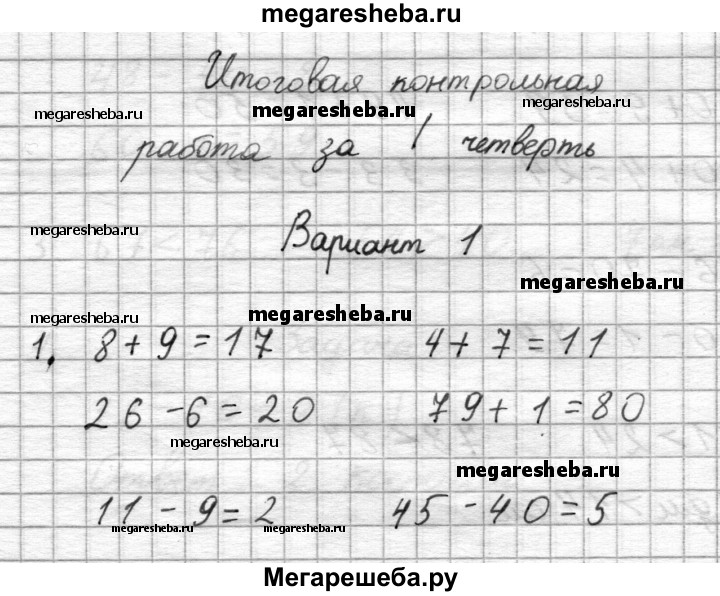 megaresheba.ru
Итоговая контрольная
megaresheba.ru megaresheba.ru megaresheba.ru
работа за I четверть
megaresheba.ru
Вариант 1
megaresheba.ru
megaresheba.ru megaresheba.ru
1. 8 + 9 = 17 4 + 7 = 11
26 - 6 = 20 79 + 1 = 80
megaresheba.ru
megaresheba.ru
11 - 9 = 2 45 - 40 = 5
megaresheba.ru megaresheba.ru megaresheba.ru
Мегарешеба.ру